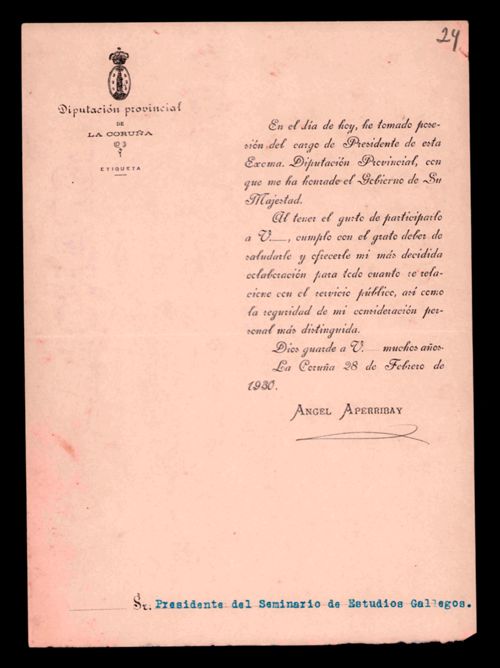 24
Diputación provincial
DE
LA CORUÑA
ETIQUETA
En el día de hoy, he tomado pose-
sión del cargo de Presidente de esta
Excma. Diputación Provincial, con
que me ha honrado el Gobierno de Su
Majestad.
Al tener el gusto de participarlo
a V___, cumplo con el grato deber de
saludarle y ofrecerle mi más decidida
colaboración para todo cuanto se rela-
cione con el servicio público, así como
la seguridad de mi consideración per-
sonal más distinguida.
Dios guarde a V___ muchos años.
La Coruña 28 de Febrero de
1930.
ANGEL APERRIBAY
Sr. Presidente del Seminario de Estudios Gallegos.